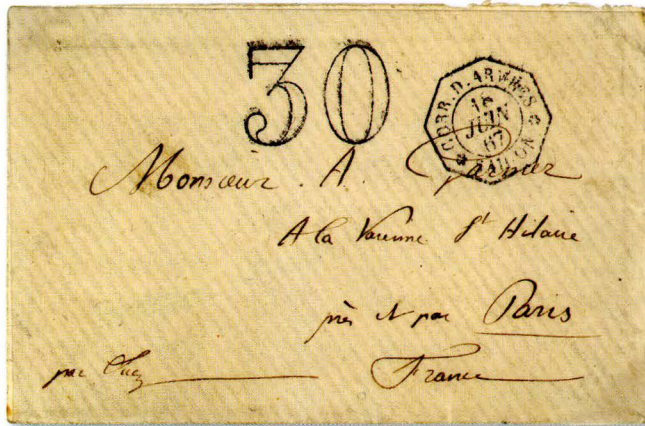 30
CORR. D. ARMÉES
18
JUIN
67
SAIGON
Monsieur . A.
A la Varenne St Hilaire
près et par Paris
par Suez
France